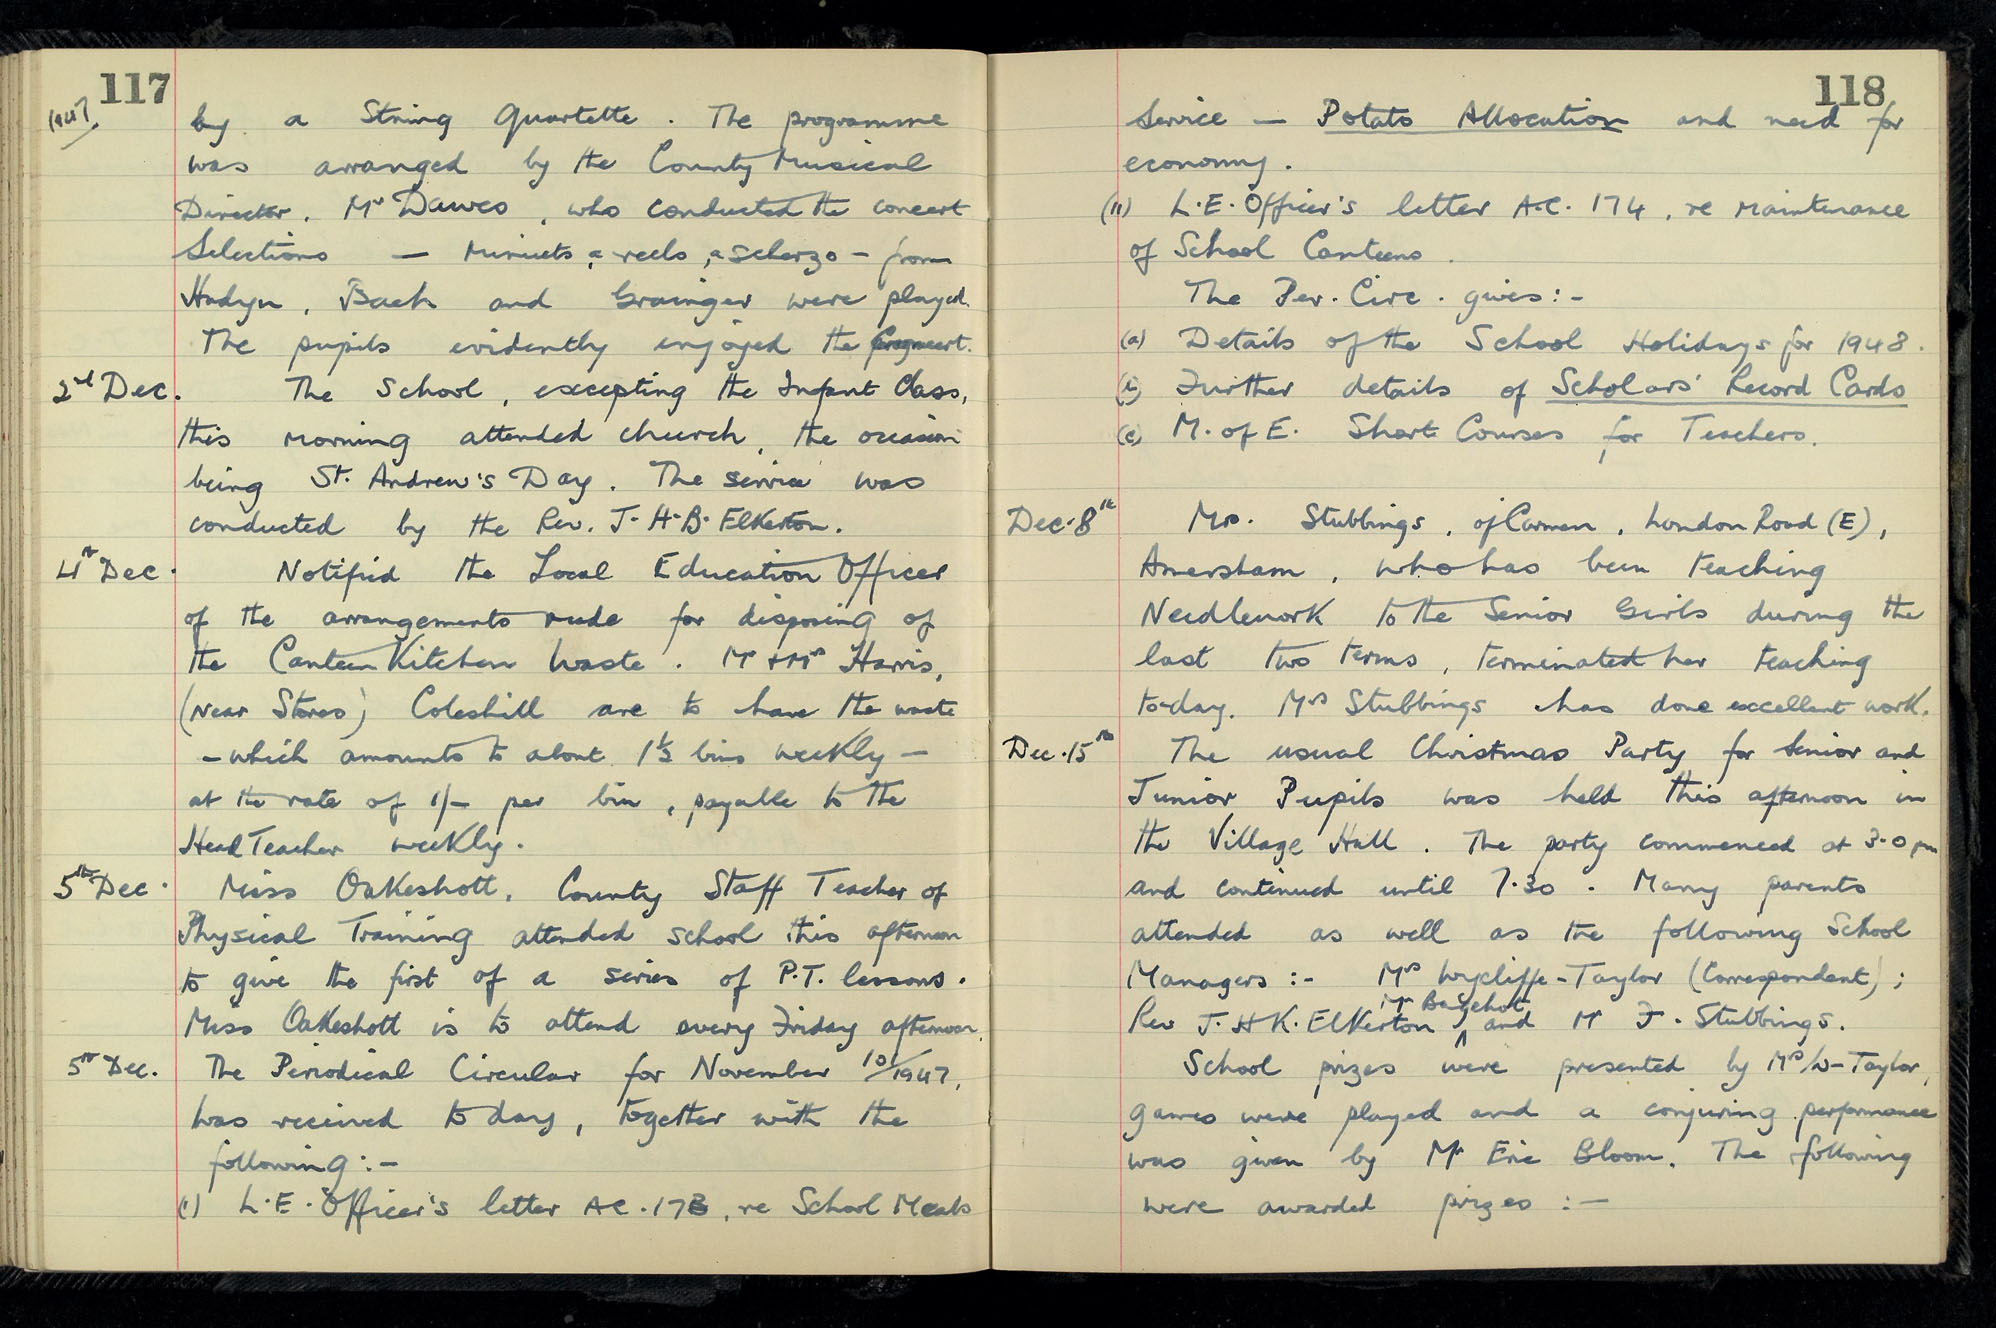 117
1947.
by a String Quartette. The programme
was arranged by the County Musical
Director, Mr Dawes, who conducted the concert
Selections — Minuets, reels, a scherzo – from
Haydn, Bach and Grainger were played.
The pupils evidently enjoyed the
2nd Dec. The School, excepting the Infant Class,
this morning attended church, the occasion
being St. Andrew's Day. The service was
conducted by the Rev. J. H. B. Elkerton.
4th Dec. Notified the Local Education Officer
of the arrangements made for disposing of
the Canteen Kitchen Waste. Mr & Mrs Harris,
(near Stores) Coleshill are to have the waste
– which amounts to about 1½ bins weekly –
at the rate of 1/- per bin, payable to the
Head Teacher weekly.
5th Dec. Miss Oakeshott, County Staff Teacher of
Physical Training attended school this afternoon
to give the first of a series of P.T. lessons.
Miss Oakeshott is to attend every Friday afternoon.
5th Dec. The Periodical Circular for November 10/1947,
was received today, together with the
following:-
(i) L.E. Officer's letter AC. 173, re School Meals
118
Service — Potato Allocation and need for
economy.
(ii) L.E. Officer's letter A.C. 174, re Maintenance
of School Canteens.
The Per. Circ. gives:-
(a) Details of the School Holidays for 1948.
(b) Further details of Scholars' Record Cards
(c) M. of E. Short Courses for Teachers.
Dec. 8th Mrs. Stubbings, of Carmen, London Road (E),
Amersham, who has been teaching
Needlework to the Senior Girls during the
last two terms, terminated her teaching
to-day. Mrs Stubbings has done excellent work.
Dec. 15th The usual Christmas Party for Senior and
Junior Pupils was held this afternoon in
the Village Hall. The party commenced at 3.0 pm
and continued until 7.30. Many parents
attended as well as the following School
Managers :- Mrs Wycliffe-Taylor (Correspondent);
Rev J. H K. Elkerton Mr Bagehot and Mr F. Stubbings.
School prizes were presented by Mrs W-Taylor,
games were played and a conjuring performance
was given by Mr Eric Bloom. The following
were awarded prizes :-